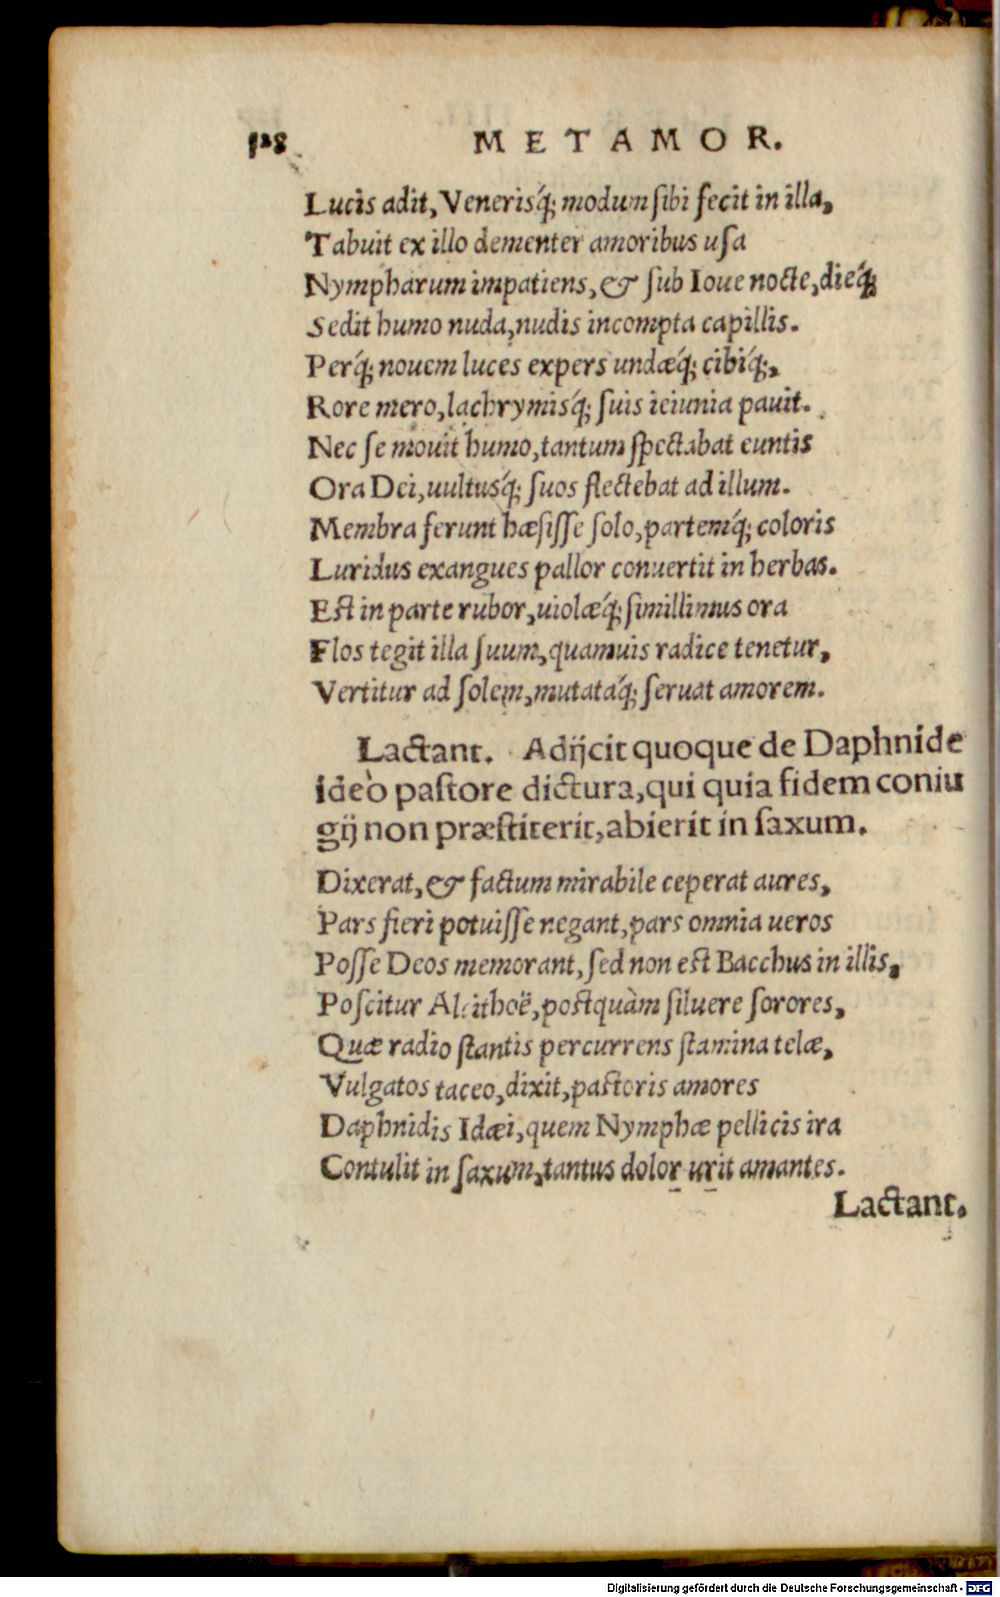 128 METAMOR.
Lucis adit, Venerisq́; modum sibi fecit in illa,
Tabuit ex illo dementer amoribus usa
Nympharum impatiens, & sub Ioue nocte, dieq́;
Sedit humo nuda, nudis incompta capillis.
Perq́; nouem luces expers undæq́; cibiq́;,
Rore mero, lachrymisq́; suis ieiunia pauit.
Nec se mouit humo, tantum spectabat euntis
Ora Dei, uultusq́; suos flectebat ad illum.
Membra ferunt hæsisse solo, partemq́; coloris
Luridus exangues pallor conuertit in herbas.
Est in parte rubor, uiolæq́; simillimus ora
Flos tegit illa suum, quamuis radice tenetur,
Vertitur ad solem, mutataq́; seruat amorem.
Lactant. Adijcit quoque de Daphnide
ideò pastore dictura, qui quia fidem coniu
gij non præstiterit, abierit in saxum.
Dixerat, & factum mirabile ceperat aures,
Pars fieri potuisse negant, pars omnia ueros
Posse Deos memorant, sed non est Bacchus in illis,
Poscitur Alcithoë, postquàm siluere sorores,
Quæ radio stantis percurrens stamina telæ,
Vulgatos taceo, dixit, pastoris amores
Daphnidis Idæi, quem Nymphæ pellicis ira
Contulit in saxum, tantus dolor urit amantes.
Lactant.
Digitalisierung gefördert durch die Deutsche Forschungsgemeinschaft - DFG